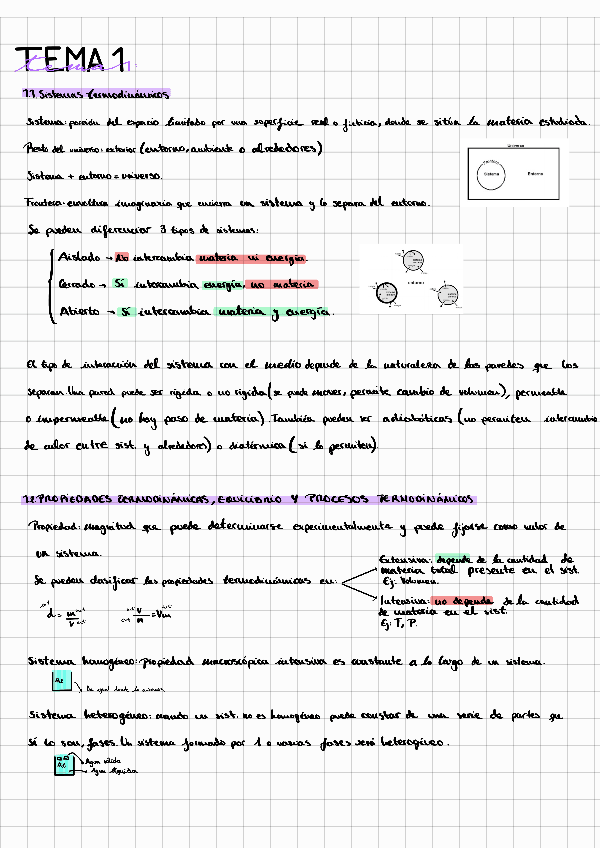 TEMA 1
tema 1.
1.1. Sistemas termodinámicos
Sistema: porción del espacio limitado por una superficie real o ficticia, donde se sitúa la materia estudiada.
Resto del universo: exterior (entorno, ambiente o alrededores)
Universo
Sistema
Entorno
Sistema + entorno = universo.
Frontera: envoltura imaginaria que encierra un sistema y lo separa del entorno.
Se pueden diferenciar 3 tipos de sistemas:
Aislado → No intercambia materia ni energía.
Cerrado → Sí intercambia energía, no materia
Abierto → Sí intercambia materia y energía.
El tipo de interacción del sistema con el medio depende de la naturaleza de las paredes que los
separan. Una pared puede ser rígida o no rígida (se puede mover, permite cambio de volumen), permeable
o impermeable (no hay paso de materia). También pueden ser adiabáticas (no permiten intercambio
de calor entre sist. y alrededores) o diatérmica (si lo permiten).
1.2. PROPIEDADES TERMODINÁMICAS, EQUILIBRIO Y PROCESOS TERMODINÁMICOS
Propiedad: magnitud que puede determinarse experimentalmente y puede fijarse como valor de
un sistema.
Se pueden clasificar las propiedades termodinámicas en:
Extensiva: depende de la cantidad de
materia total presente en el sist.
Ej: Volumen.
Intensiva: no depende de la cantidad
de materia en el sist.
Ej: T, P.
d = m/V
V/n = Vm
Sistema homogéneo: propiedad macroscópica intensiva es constante a lo largo de un sistema.
Da igual donde la
Sistema heterogéneo: cuando un sist. no es homogéneo puede constar de una serie de partes que
sí lo son, fases. Un sistema formado por 1 o varias fases será heterogéneo.
Agua sólida
Agua líquida